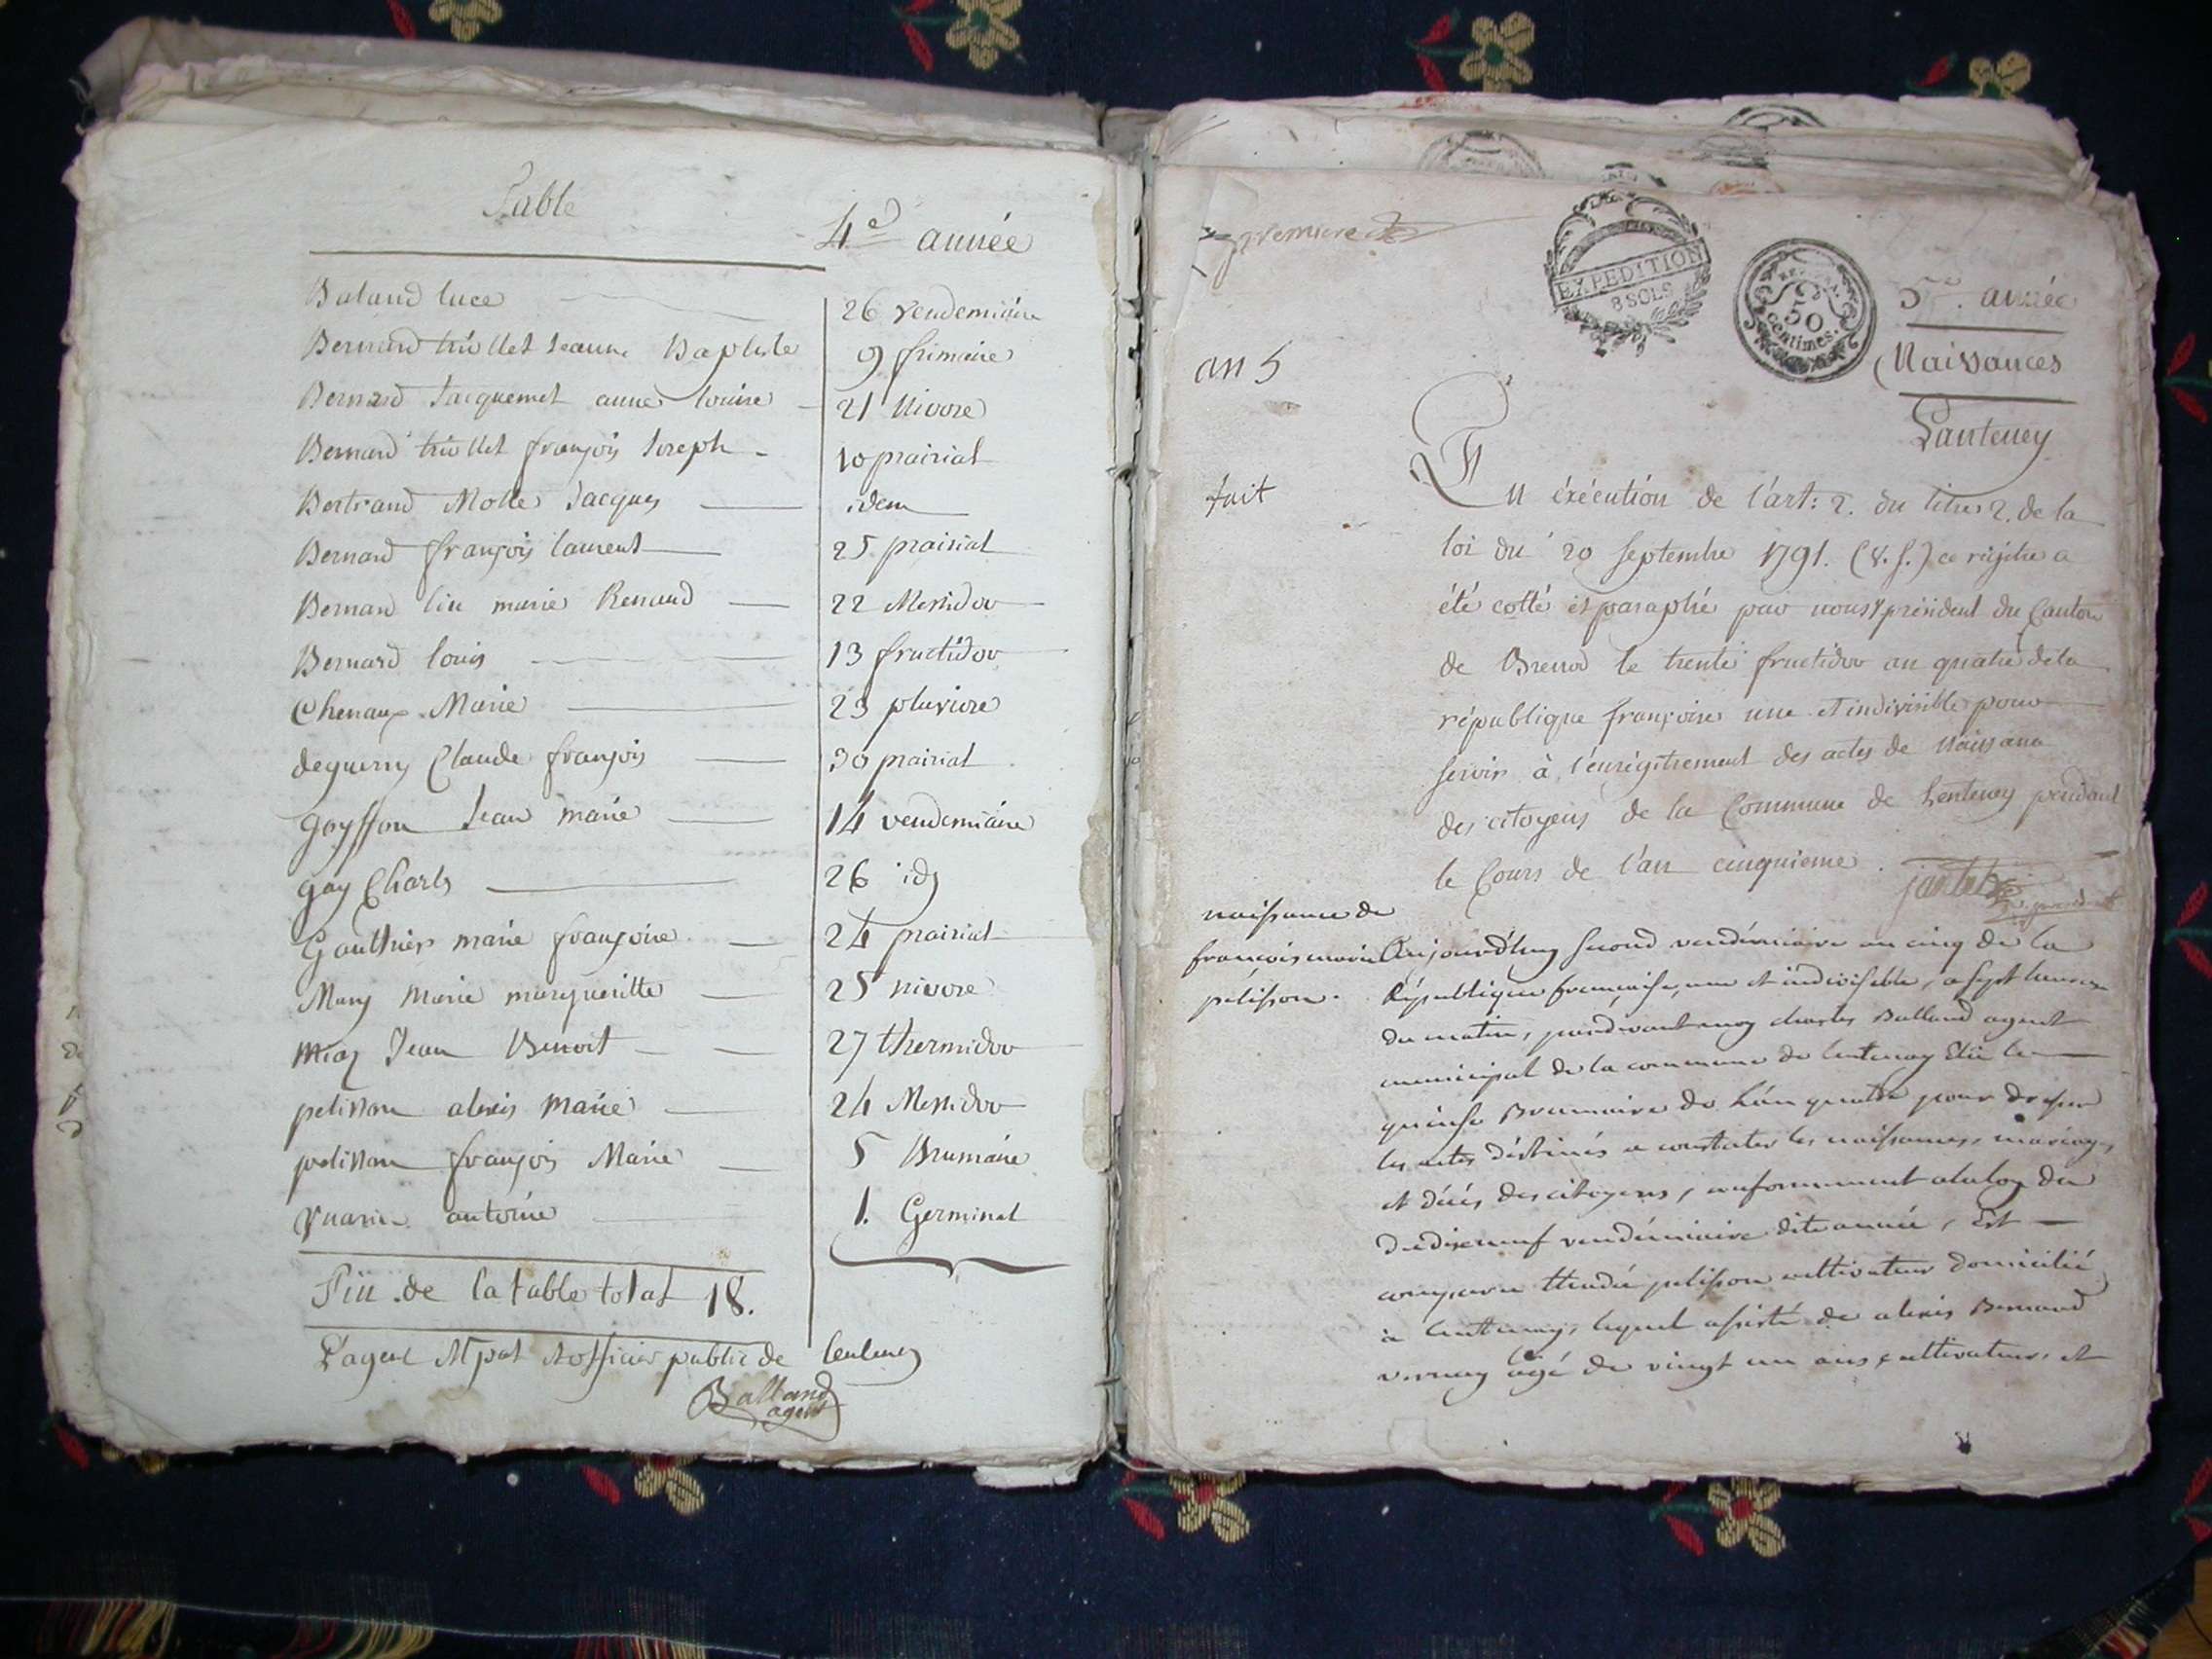 Table
4e année
Baland luce 26 vendemiaire
Bernard triollet Jeanne Baptiste 9 frimaire
Bernard Jacquemet anne louise 21 Nivose
Bernard triollet françois Joseph 10 prairial
Bertrand Molle Jacques idem
Bernard françois laurent 25 prairial
Bernard marie Renaud 22 Messidor
Bernard louis 13 fructidor
Chenaux Marie 23 pluviose
deguerry Claude françois 30 prairial
goyffon Jean marie 14 vendemiaire
goy Charles 26 id
Gauthier marie françoise 24 prairial
Mary Marie margueritte 25 nivose
Jean Benoit 27 thermidor
pelisson alexis Marie 24 Messidor
pelisson françois Marie 5 Brumaire
antoine 1. Germinal
Fin de la table total 18.
L'agent Mpal et officier public de lenteney
Balland
agent
premiere
EXPEDITION
8 SOLS
50
centimes.
5e. année
Naissances
Lanteney
an 5
fait
En éxécution de l'art: 2. du titre 2. de la
loi du 20 septembre 1791. (v. s.) ce régitre a
été cotté et paraphé par nous président du Canton
de Brenod le trente fructidor an quatre de la
république françoise une et indivisible pour
servir à l'enrégitrement des actes de Naissance
des citoyens de la Commune de Lenteney pendant
le Cours de l'an cinquieme.
naissance de
françois marie
pelisson.
Aujourd'huy second vendémiaire an cinq de la
République française, une et indivisible, a sept heures
du matin, pardevant moy charles Balland agent
municipal de la commune de lentenay Elu le
quinse Brumaire de l'an quatre pour dresser
les actes déstinés a constater les naissances, mariages,
et décés des citoyens, conformement a la loy du
dudixneuf vendémiaire dite année, Est
comparu pelisson cultivateur domicilié
à lentenay, lequel assisté de alexis Bernard
vernay agé de vingt un ans cultivateur, et